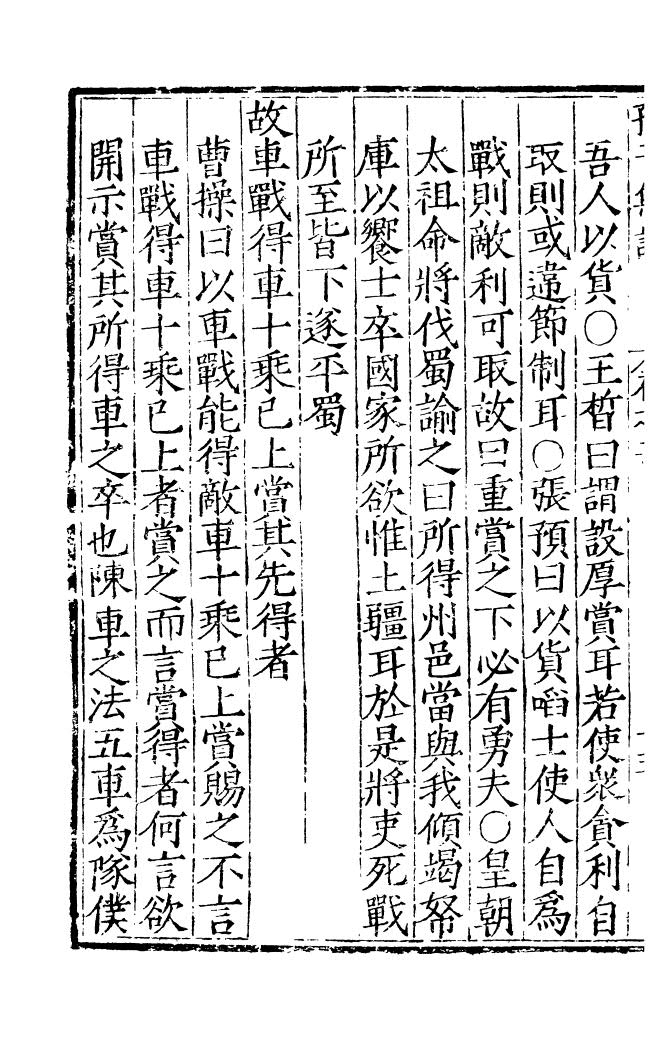 吾人以貨○王晳曰謂設厚賞耳若使衆貪利自
取則或違節制耳○張預曰以貨啗士使人自爲
戰則敵利可取故曰重賞之下必有勇夫○皇朝
太祖命將伐蜀諭之曰所得州邑當與我傾竭帑
庫以饗士卒國家所欲惟土疆耳於是將吏死戰
所至皆下遂平蜀
故車戰得車十乘已上賞其先得者
曹操曰以車戰能得敵車十乘已上賞賜之不言
車戰得車十乘已上者賞之而言賞得者何言欲
開示賞其所得車之卒也陳車之法五車爲隊僕